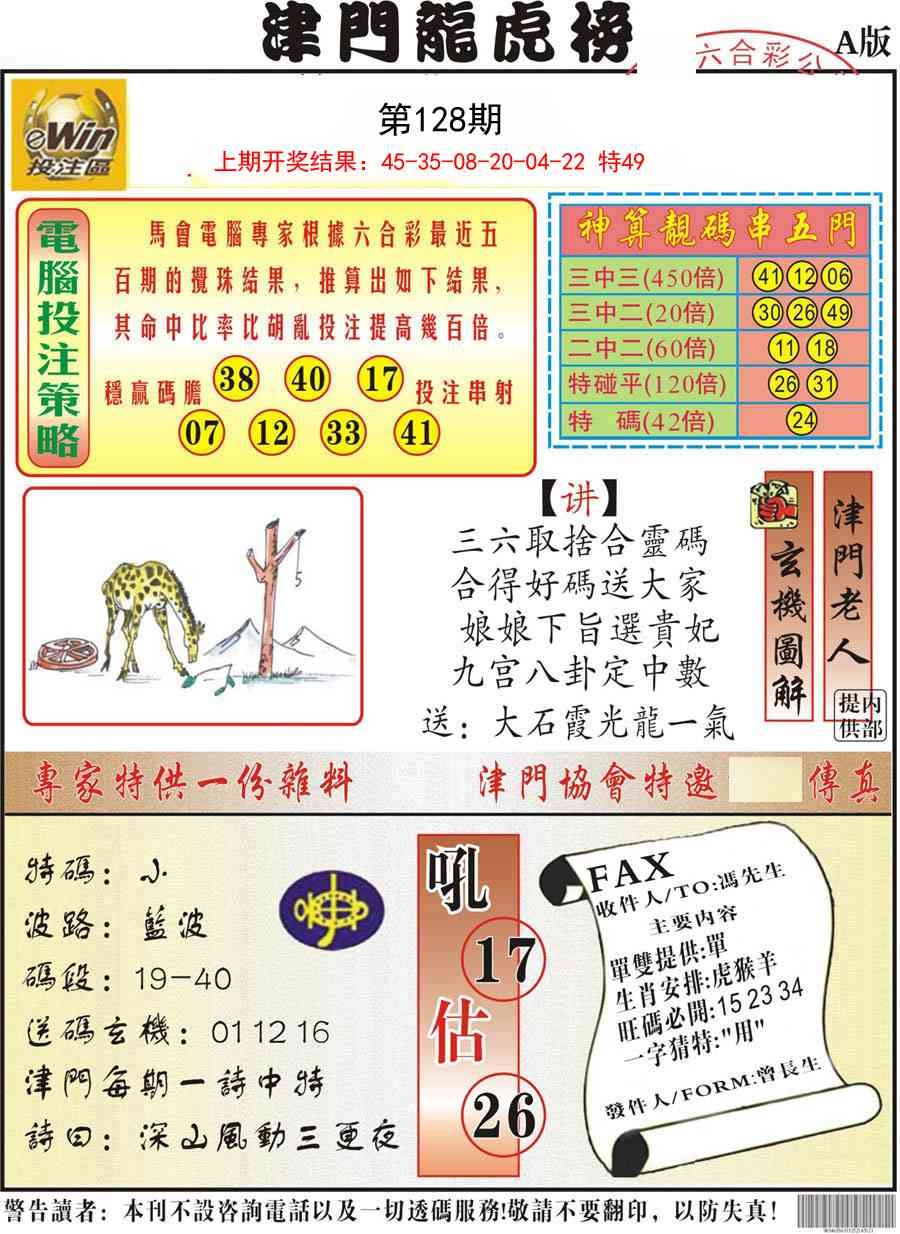 津門龍虎榜
六合彩公
A版
eWin
投注區
第128期
上期开奖结果：45-35-08-20-04-22 特49
電腦投注策略
馬會電腦專家根據六合彩最近五
百期的攪珠結果，推算出如下結果，
其命中比率比胡亂投注提高幾百倍。
穩贏碼膽 38 40 17 投注串射
07 12 33 41
神算靚碼串五門
三中三(450倍) 41 12 06
三中二(20倍) 30 26 49
二中二(60倍) 11 18
特碰平(120倍) 26 31
特 碼(42倍) 24
5
【讲】
三六取捨合靈碼
合得好碼送大家
娘娘下旨選貴妃
九宫八卦定中數
送：大石霞光龍一氣
玄機圖解
津門老人
提供
内部
專家特供一份雜料
津門協會特邀 傳真
特碼：小
波路：藍波
碼段：19-40
送碼玄機：01 12 16
津門每期一詩中特
詩曰：深山風動三更夜
吼
17
估
26
FAX
收件人/TO:馮先生
主要内容
單雙提供:單
生肖安排:虎猴羊
旺碼必開:15 23 34
一字猜特:"用"
發件人/FORM:曾長生
警告讀者：本刊不設咨詢電話以及一切透碼服務!敬請不要翻印，以防失真!